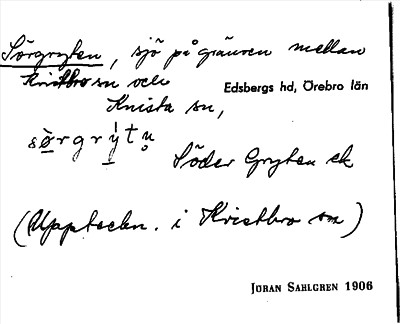 Sörgryten, sjö på gränsen mellan
Kvistbro sn och
Edsbergs hd, Örebro län
Knista sn,
Söder Gryten ek
(Uppteckn. i Kvistbro sn)
JÖRAN SAHLGREN 1906